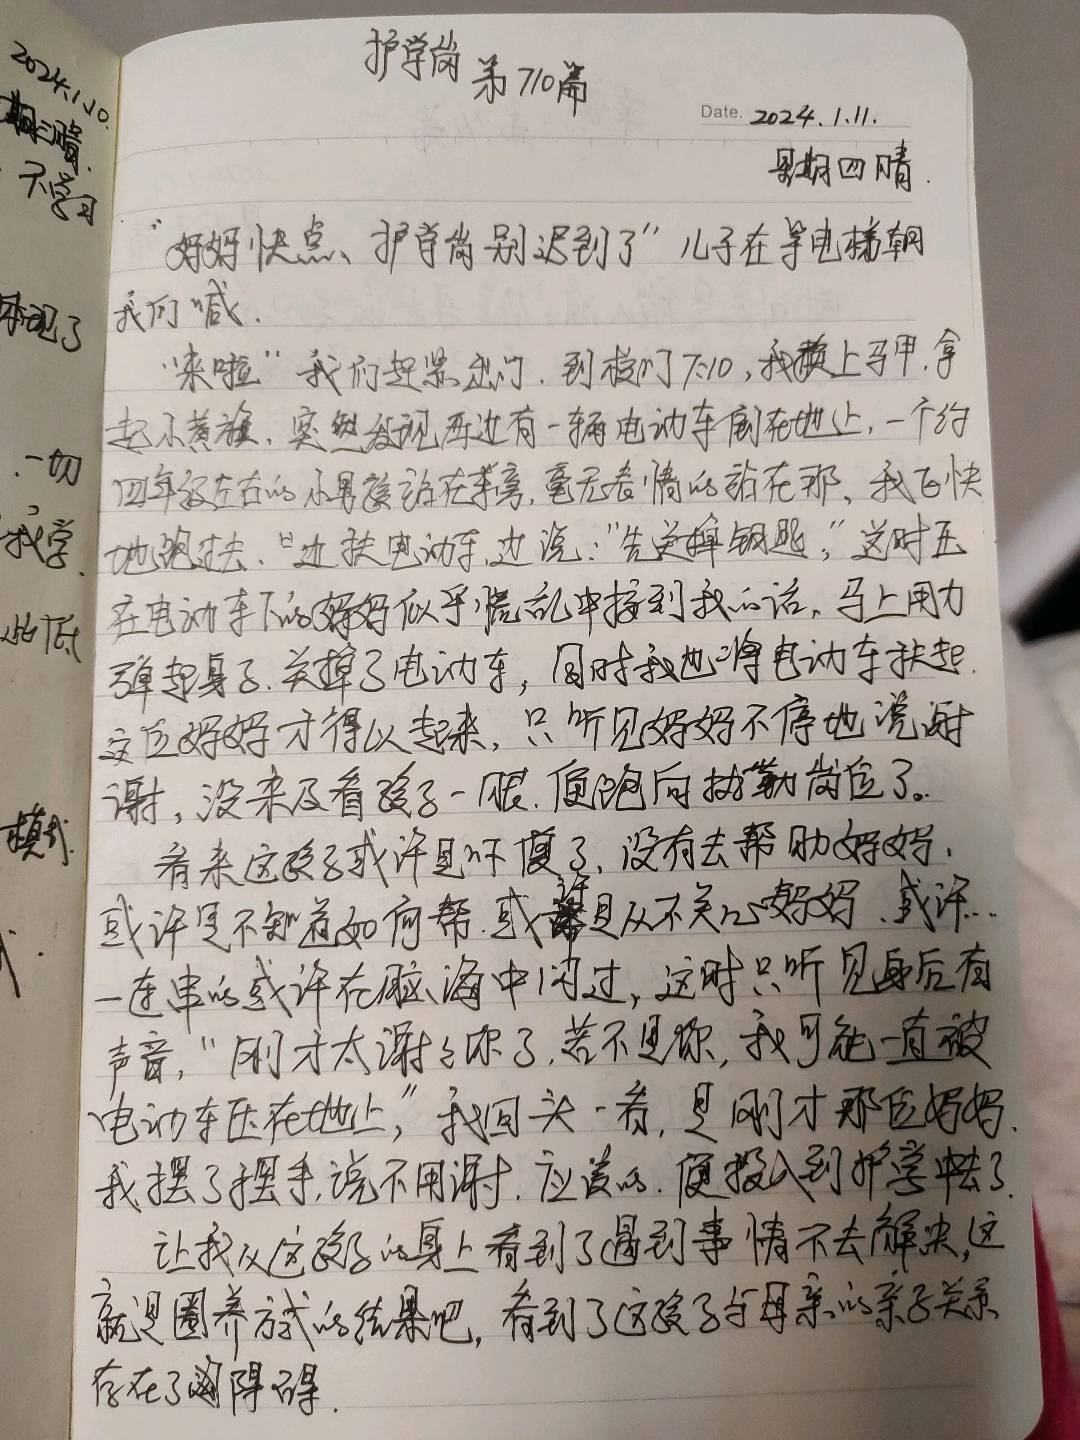 护学岗 第710篇
Date. 2024.1.11.
星期四 晴.
"妈妈快点、护学岗别迟到了"儿子在等电梯朝
我们喊.
"来啦"我们赶紧出门.到校门7:10,我换上马甲.拿
起小黄旗.突然发现西边有一辆电动车倒在地上,一个约
四年级左右的小男孩站在车旁,毫无表情的站在那、我飞快
地跑过去."边扶电动车,边说:"先关掉钥匙,"这时压
在电动车下的妈妈似乎慌乱中接到我的话,马上用力
弹起身子.关掉了电动车,同时我也将电动车扶起.
这位妈妈才得以起来,只听见妈妈不停地说谢
谢,没来及看孩子一眼.便跑向执勤岗位了。
看来这孩子或许是吓傻了、没有去帮助妈妈.
或许是不知道如何帮.或许是从不关心妈妈、或许…
一连串的或许在脑海中闪过,这时只听见身后有
声音,"刚才太谢谢你了,若不是你,我可能一直被
电动车压在地上,"我回头一看,是刚才那位妈妈.
我摆了摆手,说不用谢.应该的.便投入到护学中去了.
让我从这孩子的身上看到了遇到事情不去解决,这
就是圈养方式的结果吧,看到了这孩子与母亲的亲子关系
存在了障碍.
2024.1.10.
期三 晴.
不学习
体现了
.一切
我学
比低
模式
式.